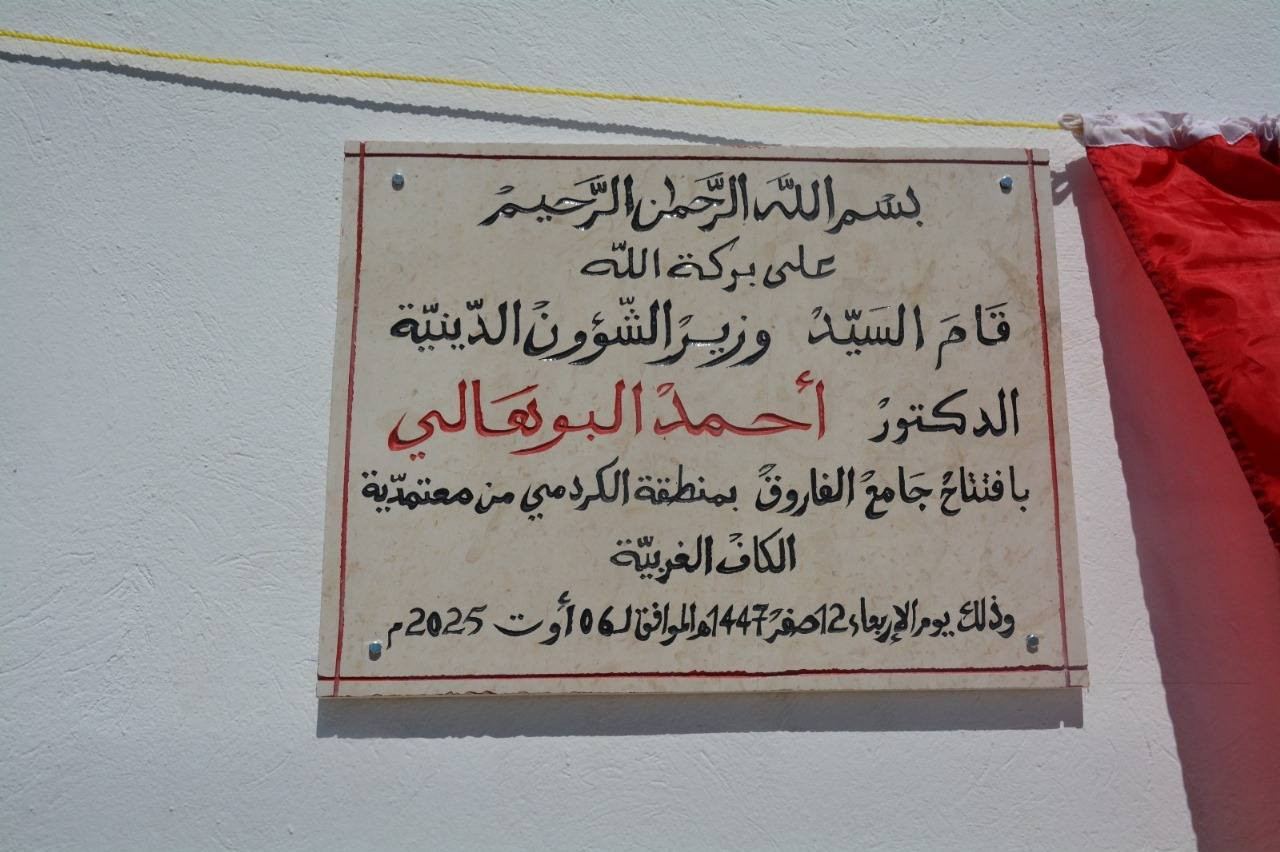 بسْم اللَّه الرَّحمان الرَّحيمْ
على بركة اللّه
قَامَ السَيّدْ وزيرْ الشّؤونْ الدّينيّة
الدكتورْ أحمدْ البوهَالي
بافتتاحْ جَامعْ الفاروقْ بمنطقة الكردمي من معتمديّة
الكافْ الغربيّة
وذلك يوم الإربعاء 12 صفرْ 1447هـ الموافق لـ 06 أوت 2025م